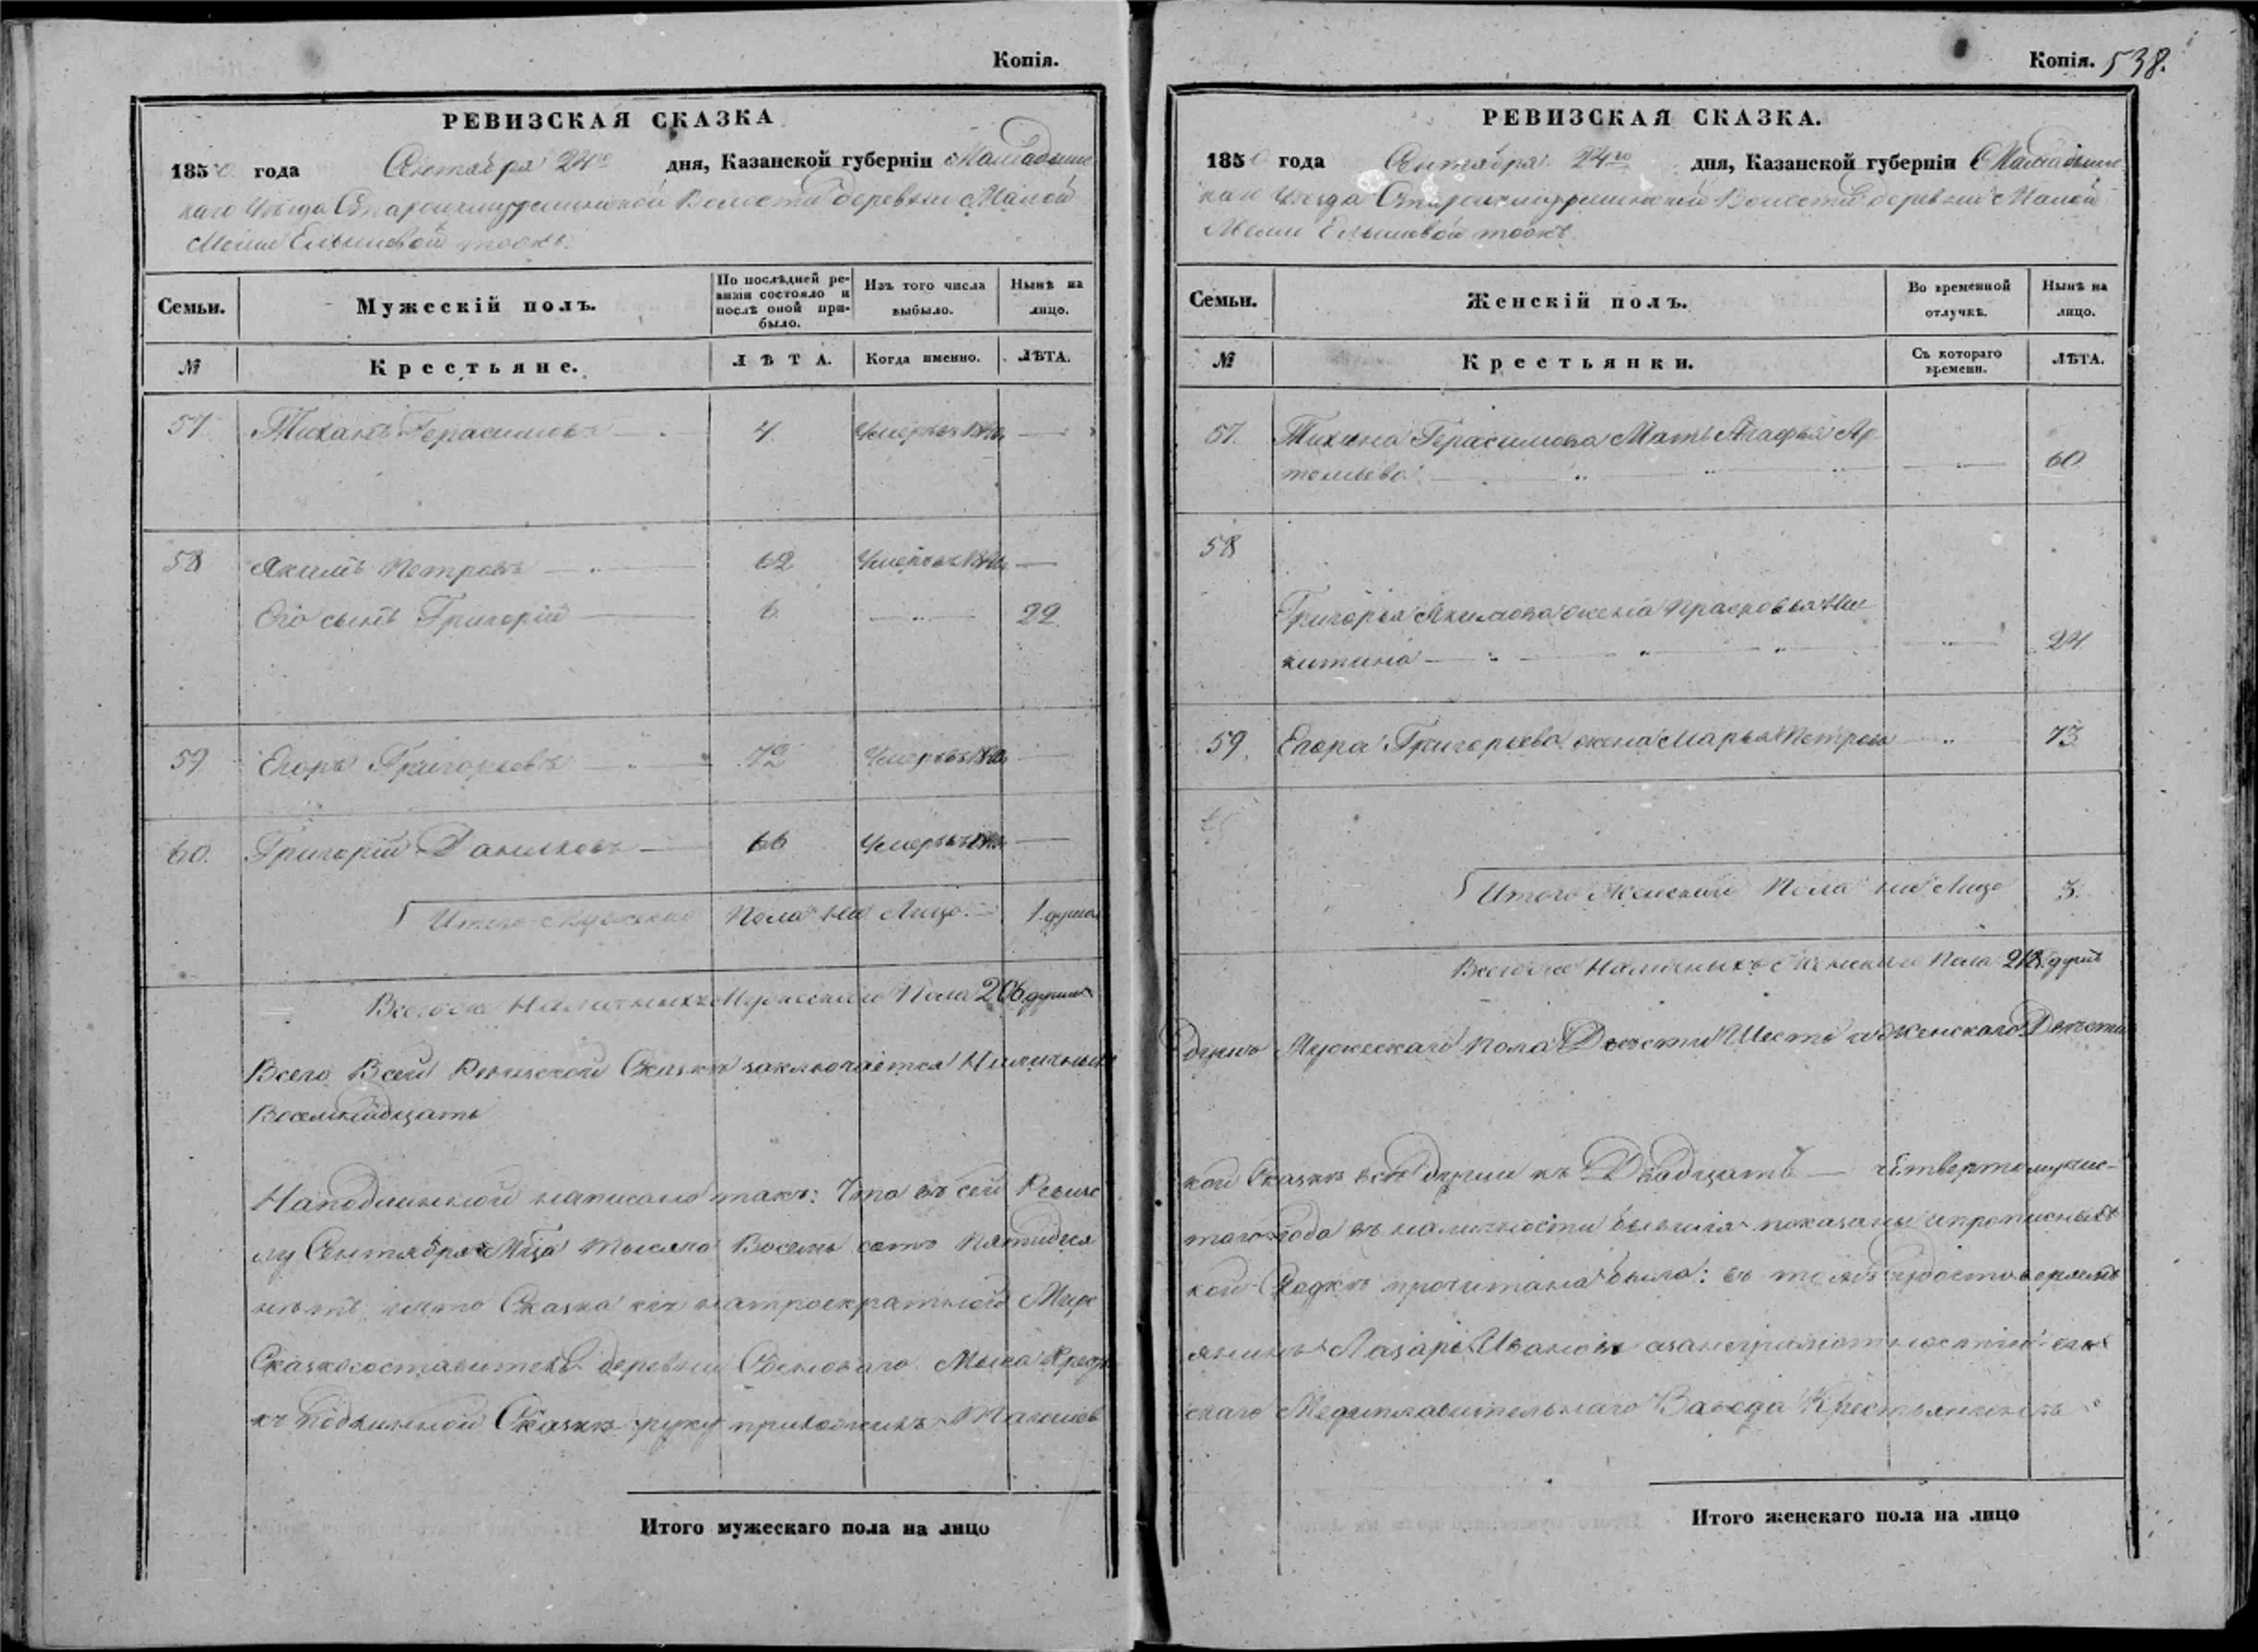 Копія.
РЕВИЗСКАЯ СКАЗКА
1850 года Сентября 24го дня, Казанской губерніи Мамадышс
каго Уѣзда Волости деревни Малой
Меши тожъ.
Семьи. Мужескій полъ. По послѣдней ре- Изъ того числа Нынѣ на
визіи состояло и
послѣ оной при- выбыло. лицо.
было.
№ Крестьяне. ЛѢТА. Когда именно. ЛѢТА.
57 Тиханъ Герасимовъ 4 Умеръ въ
58 Якимъ Петровъ 62 Умеръ въ
Его сынъ Григорій 6 22
59 Егоръ Григорьевъ 72 Умеръ въ
60. Григорій Даниловъ 66 Умеръ въ
Итого Мужескаго Пола на Лицо 1 душа
Всего же Наличныхъ Мужескаго Пола 206 душъ
Всего Всей Ревизской Сказкѣ заключается Наличныхъ
Восемнадцать
Наподлинной написано такъ: Что въ сей Ревизс
му Сентября Мца тысяча Восемь сотъ Пятидеся
нѣтъ и что Сказка сія натроекратной Мирс
Сказкосоставитель деревни Мыса Крестья
къ подлинной Сказкѣ руку приложилъ
Итого мужескаго пола на лицо
Копія. 538.
РЕВИЗСКАЯ СКАЗКА.
1850 года Сентября 24го дня, Казанской губерніи Мамадышс
каго Уѣзда Волости деревни Малой
Меши тожъ.
Семьи. Женскій полъ. Во временной Нынѣ на
отлучкѣ. лицо.
№ Крестьянки. Съ котораго ЛѢТА.
времени.
57. Тихана Герасимова Мать Агафья Ар
60
58
Григорья Якимова жена Прасковья Ни
китина 24
59. Егора Григорьева жена Марья Петрова 73
60
Итого Женскаго Пола на Лицо 3.
Всего же Наличныхъ Женскаго Пола 218 душъ
душъ Мужескаго пола Двѣсти Шесть и Женскаго Двѣсти
кой Сказкѣ всѣ души къ Двадцать Четвертому чис-
таго года въ наличности бывшія показаны и прописныхъ
кой Сходкѣ прочитана была: въ томъ и удостовѣряемъ
янинъ Лазарь Ивановъ а за неграмотностію его
скаго Медиплавительнаго Завода Крестьянинъ
Итого женскаго пола на лицо